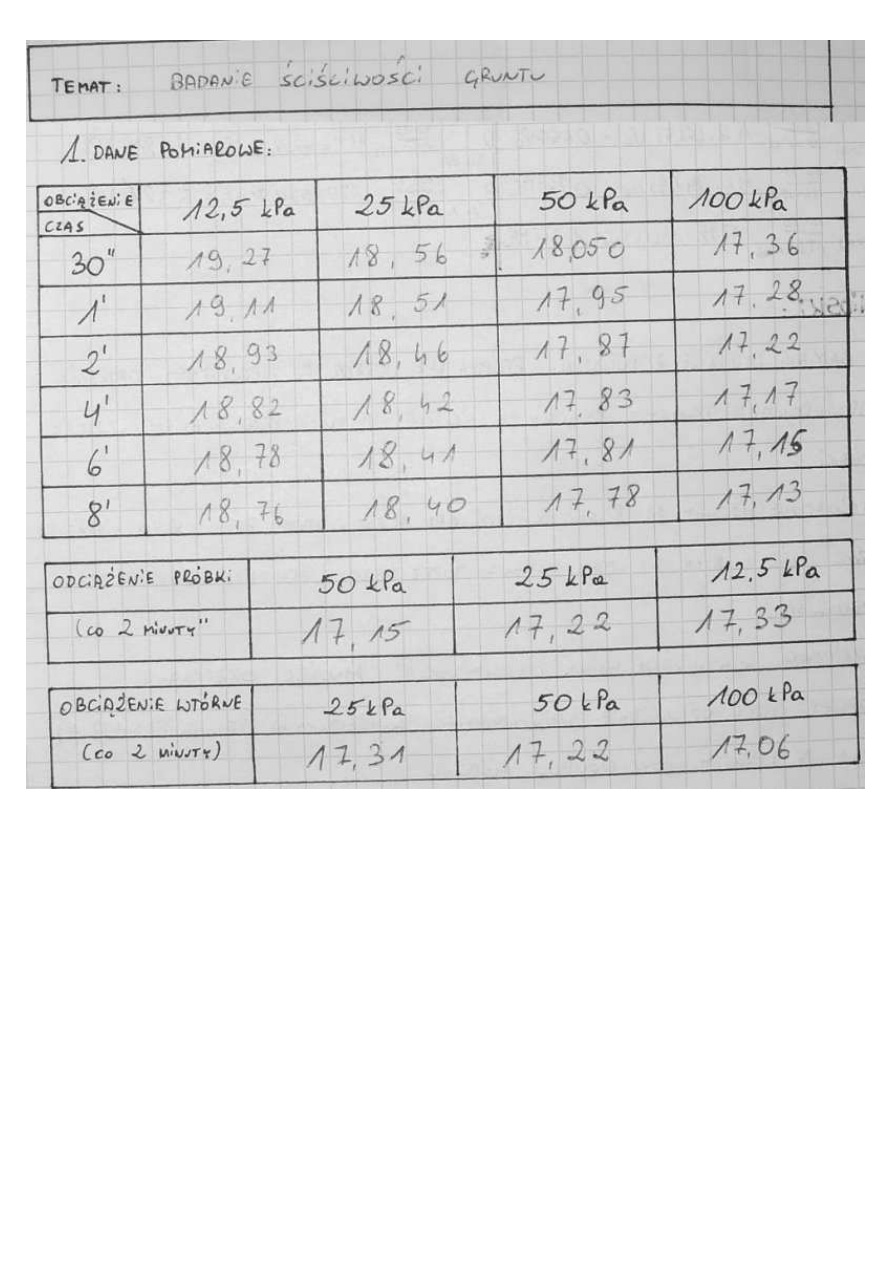 TEMAT: BADANIE ŚCIŚLIWOŚCI GRUNTU
1. DANE POMIAROWE:
OBCIĄŻENIE 12,5 kPa 25 kPa 50 kPa 100 kPa
CZAS
30" 19,27 18,56 18,050 17,36
1' 19,11 18,51 17,95 17,28
2' 18,93 18,46 17,87 17,22
4' 18,82 18,42 17,83 17,17
6' 18,78 18,41 17,81 17,15
8' 18,76 18,40 17,78 17,13
ODCIĄŻENIE PRÓBKI 50 kPa 25 kPa 12,5 kPa
(co 2 MINUTY" 17,15 17,22 17,33
OBCIĄŻENIE WTÓRNE 25 kPa 50 kPa 100 kPa
(co 2 MINUTY) 17,31 17,22 17,06